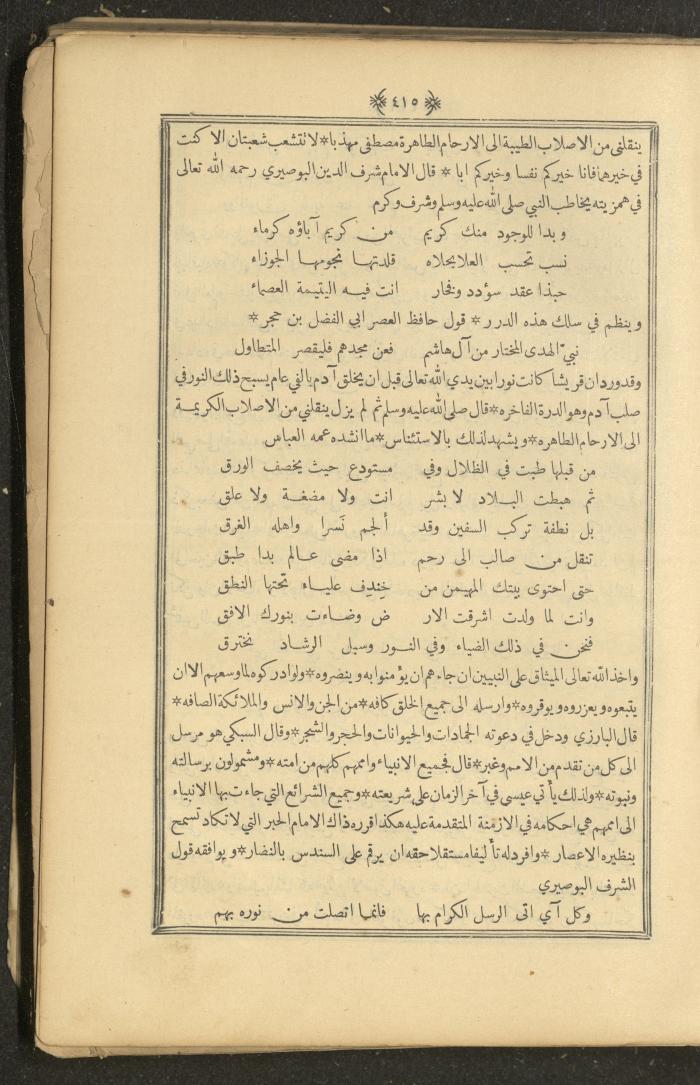 ٤١٥
ينقلني من الاصلاب الطيبة الى الارحام الطاهرة مصطفى مهذبا * لا تتشعب شعبتان الا كنت
في خيرها فانا خيركم نفسا وخيركم ابا * قال الامام شرف الدين البوصيري رحمه الله تعالى
في همزيته يخاطب النبي صلى الله عليه وسلم وشرف وكرم
وبدا للوجود منك كريم من كريم آباؤه كرماء
نسب تحسب العلا بحلاه قلدتها نجومها الجوزاء
حبذا عقد سؤدد وفخار انت فيه اليتيمة العصماء
وينظم في سلك هذه الدرر * قول حافظ العصر ابي الفضل بن حجر *
نبيّ الهدى المختار من آل هاشم فعن مجدهم فليقصر المتطاول
وقد ورد ان قريشا كانت نورا بين يدي الله تعالى قبل ان يخلق آدم بالفي عام يسبح ذلك النور في
صلب آدم وهو الدرة الفاخره * قال صلى الله عليه وسلم ثم لم يزل ينقلني من الاصلاب الكريمة
الى الارحام الطاهره * ويشهد لذلك بالاستئناس * ما انشده عمه العباس
من قبلها طبت في الظلال وفي مستودع حيث يخصف الورق
ثم هبطت البلاد لا بشر انت ولا مضغة ولا علق
بل نطفة تركب السفين وقد ألجم نَسرا واهله الغرق
تنقل من صالب الى رحم اذا مضى عالم بدا طبق
حتى احتوى بيتك المهيمن من خِندِف علياء تحتها النطق
وانت لما ولدت اشرقت الار ض وضاءت بنورك الافق
فنحن في ذلك الضياء وفي النور وسبل الرشاد نخترق
واخذ الله تعالى الميثاق على النبيين ان جاءهم ان يؤمنوا به وينصروه * ولو ادركوه لما وسعهم الا ان
يتبعوه ويعزروه ويوقروه * وارسله الى جميع الخلق كافه * من الجن والانس والملائكة الصافه *
قال البارزي ودخل في دعوته الجمادات والحيوانات والحجر والشجر * وقال السبكي هو مرسل
الى كل من تقدم من الامم وغبر * قال فجميع الانبياء واممهم كلهم من امته * ومشمولون برسالته
ونبوته * ولذلك يأتي عيسى في آخر الزمان على شريعته * وجميع الشرائع التي جاءت بها الانبياء
الى اممهم هي احكامه في الازمنة المتقدمة عليه هكذا قرره ذاك الامام الحبر التي لا تكاد تسمح
بنظيره الاعصار * وافرد له تأليفا مستقلا حقه ان يرقم على السندس بالنضار * ويوافقه قول
الشرف البوصيري
وكل آي اتى الرسل الكرام بها فانما اتصلت من نوره بهم